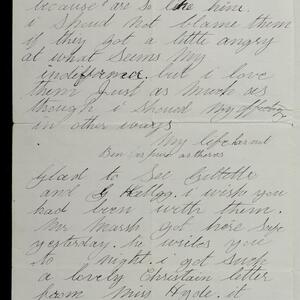 because are so like him.
i should not blame them
if they got a little angry
at what seems my
indiffrence. but i love
them Just as much as
though i should my affection
in other ways
My life has not
Ben as pure as theres
glad to See
and Kellogg. i wish you
had been with them.
Mr Marsh got here safe
yesterday. he writes you
to night. i got such
a lovely Christain letter
from Miss Hyde. it